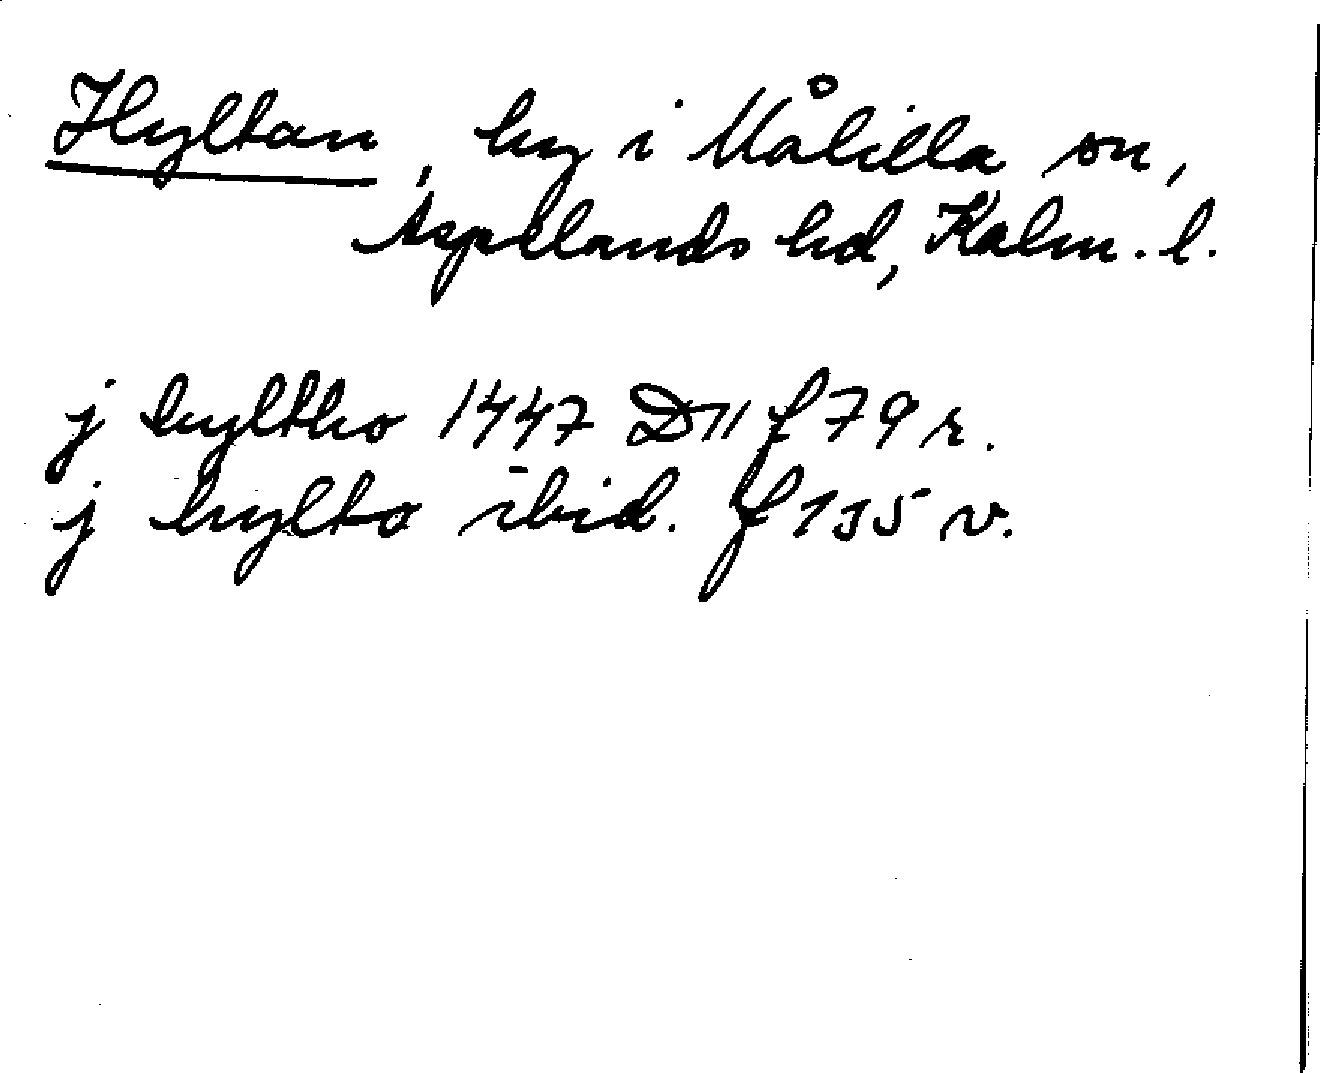 Hyltan, by i Målilla sn,
Aspelands hd, Kalm. l.
j hyltho 1447 D 11 f 79 r.
j hylto ibid. f 135 v.